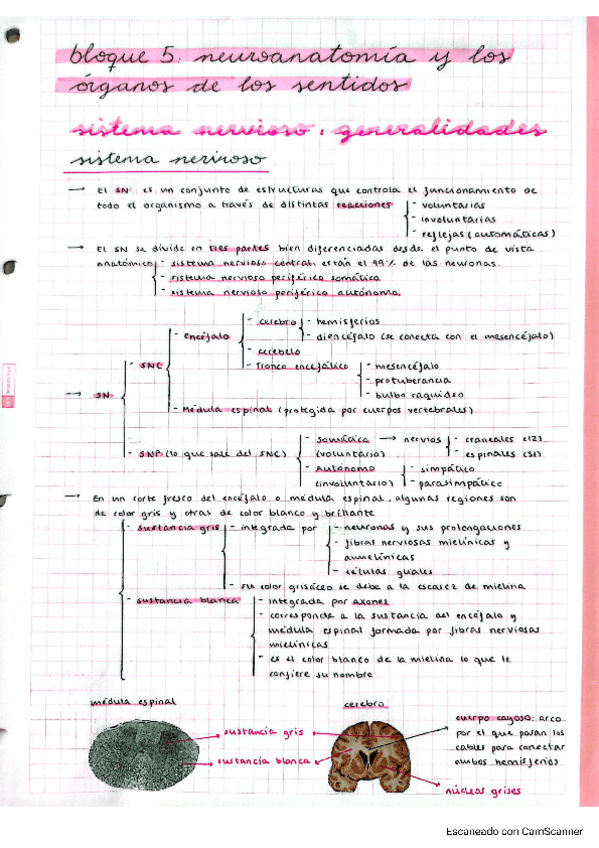 bloque 5: neuroanatomía y los
órganos de los sentidos
sistema nervioso: generalidades
sistema nervioso
→ El SN es un conjunto de estructuras que controla el funcionamiento de
todo el organismo a través de distintas reacciones
- voluntarias
- involuntarias
- reflejas (automáticas)
→ El SN se divide en tres partes bien diferenciadas desde el punto de vista
anatómico
- sistema nervioso central: están el 99% de las neuronas.
- sistema nervioso periférico somático
- sistema nervioso periférico autónomo.
→ SN
- SNC
- encéfalo
- cerebro
- hemisferios
- diencéfalo (se conecta con el mesencéfalo)
- cerebelo
- Tronco encefálico
- mesencéfalo
- protuberancia
- bulbo raquídeo
- Médula espinal (protegida por cuerpos vertebrales)
- SNP (lo que sale del SNC)
- Somática → nervios
(voluntario)
- craneales (12)
- espinales (31)
- Autónomo
(involuntario)
- simpático
- parasimpático
→ En un corte fresco del encéfalo o médula espinal, algunas regiones son
de color gris y otras de color blanco y brillante
- sustancia gris
- integrada por
- neuronas y sus prolongaciones
- fibras nerviosas mielínicas y
amielínicas
- células gliales
- su color grisáceo se debe a la escasez de mielina
- sustancia blanca
- integrada por axones
- corresponde a la sustancia del encéfalo y
médula espinal formada por fibras nerviosas
mielínicas
- es el color blanco de la mielina lo que le
confiere su nombre
médula espinal
cerebro
sustancia gris
sustancia blanca
cuerpo calloso: arco
por el que pasan los
cables para conectar
ambos hemisferios
núcleos grises
Escaneado con CamScanner